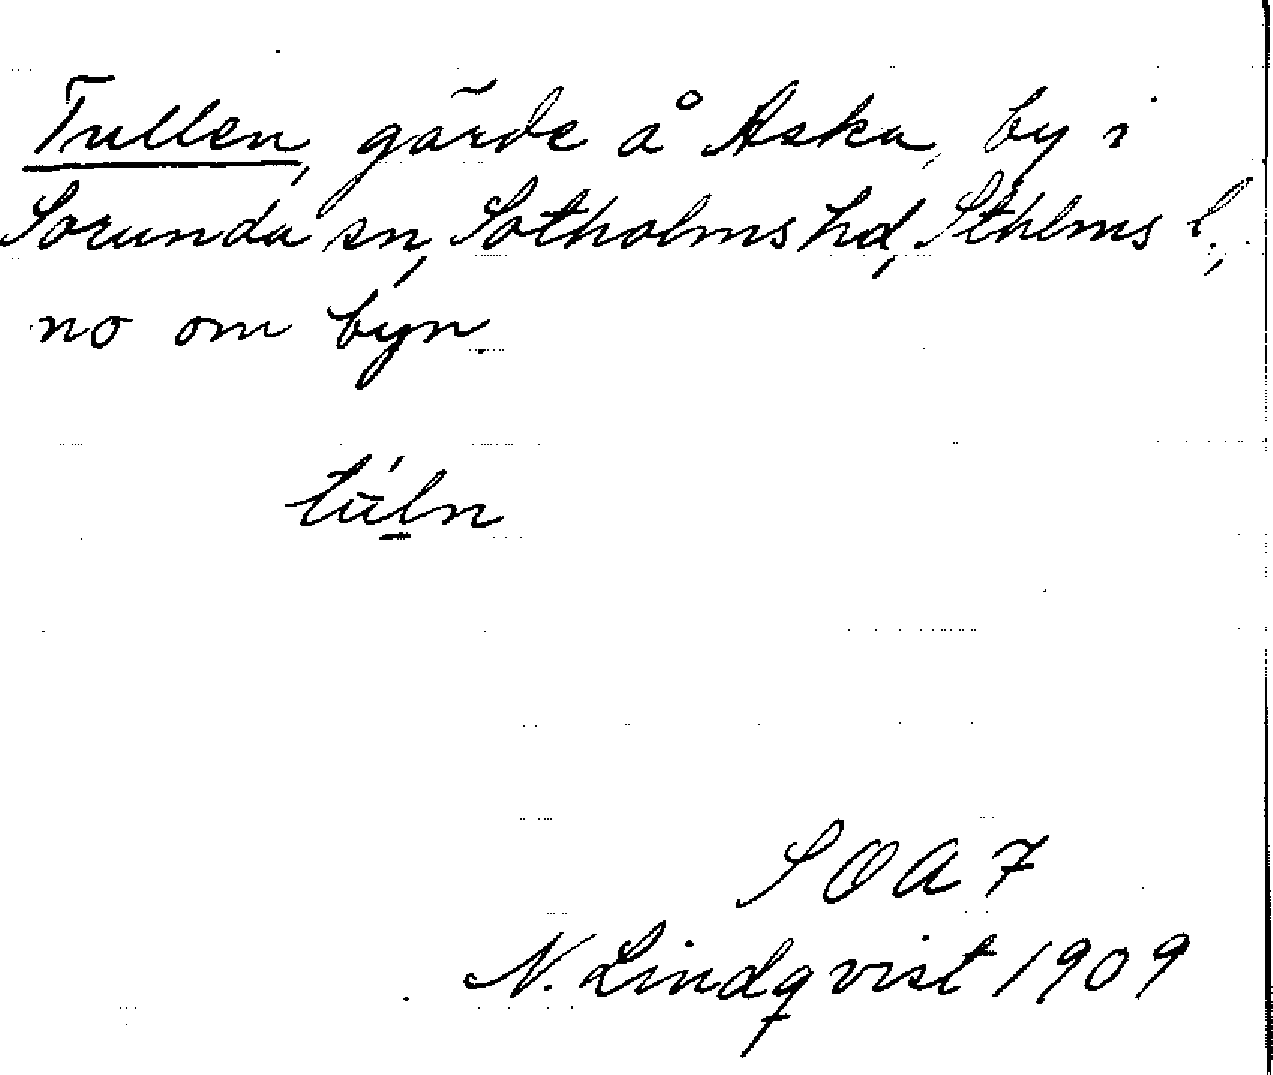 Tullen, gärde å Aska, by i
Sorunda sn, Sotholms hd, Sthlms l.,
no om byn
SOA 7
N. Lindqvist 1909